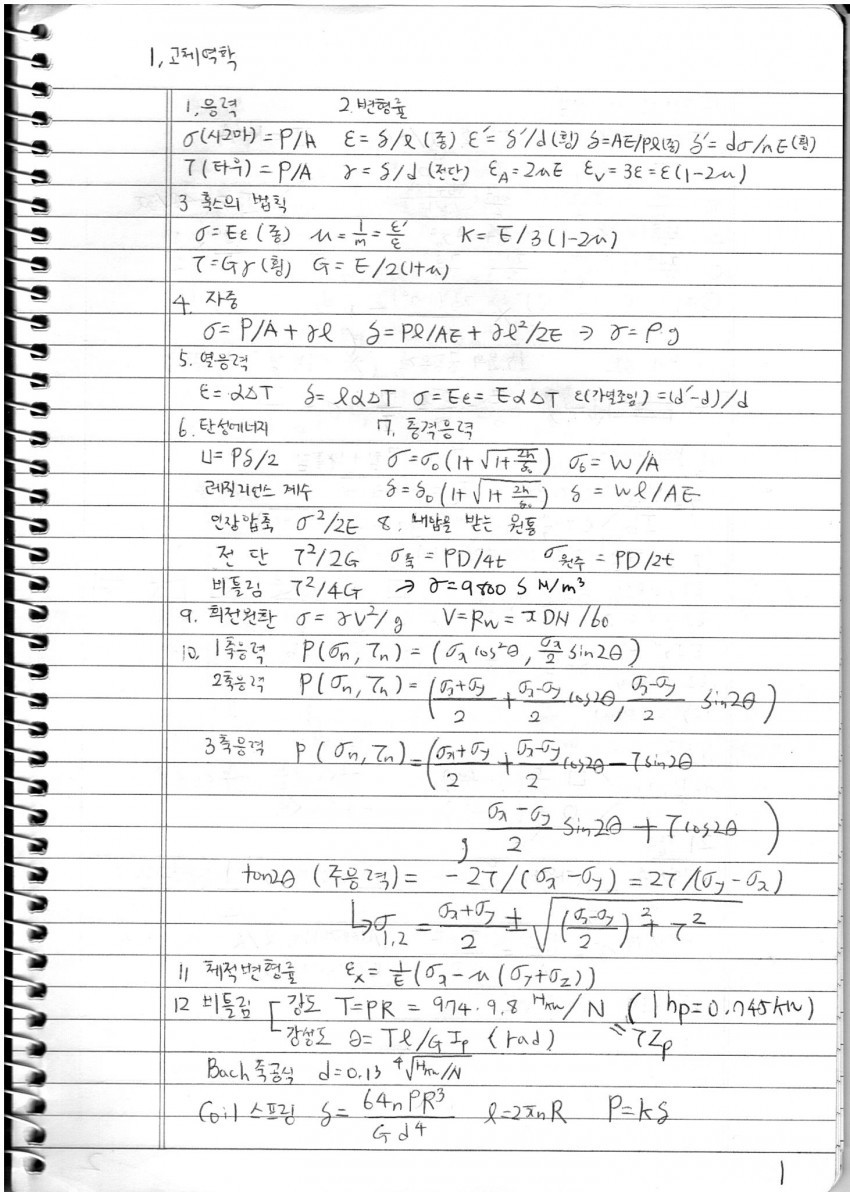 1. 고체역학
1. 응력 2. 변형률
σ(시그마) = P/A ε = δ/ℓ (종) ε' = δ'/d (횡) δ=AE/Pℓ(종) δ' = dσ/mE (횡)
τ(타우) = P/A γ = δ/d (전단) ε_A = 2με ε_V = 3ε = ε(1-2μ)
3 훅스의 법칙
σ = Eε (종) μ = 1/m = ε'/ε K = E/3(1-2μ)
τ = Gγ (횡) G = E/2(1+μ)
4. 자중
σ = P/A + γℓ δ = Pℓ/AE + γℓ²/2E ⇒ γ = ρg
5. 열응력
ε = α△T δ = ℓα△T σ = Eε = Eα△T ε(가열조임) = (d'-d)/d
6. 탄성에너지 7. 충격응력
U = Pδ/2 σ = σ₀(1+√(1+2h/δ₀)) σ₀ = W/A
레질리언스 계수 δ = δ₀(1+√(1+2h/δ₀)) δ = Wℓ/AE
인장압축 σ²/2E 8. 내압을 받는 원통
전 단 τ²/2G σ축 = PD/4t σ원주 = PD/2t
비틀림 τ²/4G → γ=9800 S N/m³
9. 회전원환 σ = γV²/g V = Rw = πDN/60
10. 1축응력 P(σn, τn) = (σx cos²θ, σx/2 sin2θ)
2축응력 P(σn, τn) = ((σx+σy)/2 + (σx-σy)/2 cos2θ, (σx-σy)/2 sin2θ)
3축응력 P(σn, τn) = ((σx+σy)/2 + (σx-σy)/2 cos2θ - τsin2θ
, (σx-σy)/2 sin2θ + τcos2θ)
tan2θ (주응력) = -2τ/(σx-σy) = 2τ/(σy-σx)
↳σ1,2 = (σx+σy)/2 ± √(((σx-σy)/2)² + τ²)
11 체적변형률 εx = 1/E(σx - μ(σy+σz))
12 비틀림 강도 T=PR = 974·9.8 Hkw/N (1hp=0.745kW)
강성도 θ = Tℓ/GIp (rad) =τZp
Bach 축공식 d=0.13 ⁴√Hkw/N
Coil 스프링 δ = 64nPR³/Gd⁴ ℓ=2πnR P=kδ
1